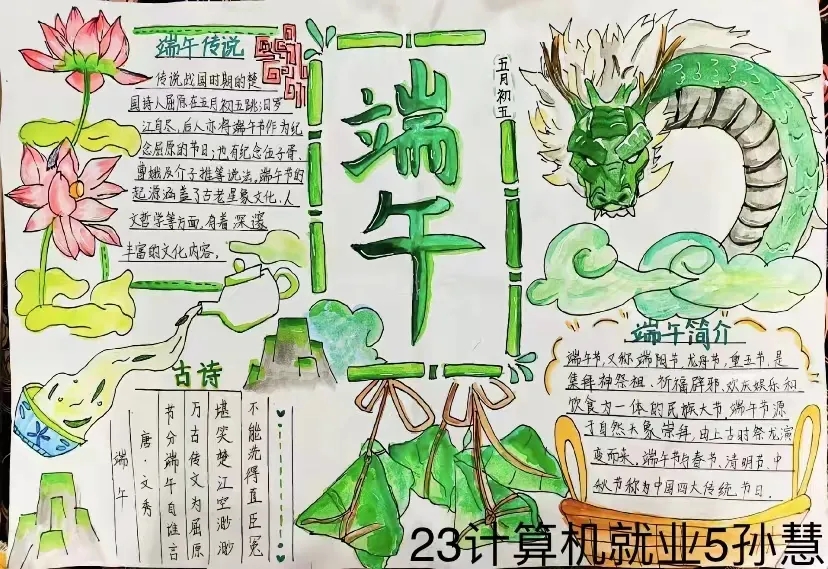 端午传说
传说战国时期的楚
国诗人屈原在五月初五跳汨罗
江自尽，后人亦将端午节作为纪
念屈原的节日；也有纪念伍子胥、
曹娥及介子推等说法。端午节的
起源涵盖了古老星象文化、人
文哲学等方面，有着深邃
丰富的文化内容。
端午
五月初五
古诗
端午
唐·文秀
节分端午自谁言
万古传文为屈原
堪笑楚江空渺渺
不能洗得直臣冤
端午简介
端午节，又称端阳节、龙舟节、重五节、是
集拜神祭祖、祈福辟邪、欢庆娱乐和
饮食为一体的民族大节，端午节源
于自然天象崇拜，由上古时祭龙演
变而来。端午节与春节、清明节、中
秋节称为中国四大传统节日.
23计算机就业5孙慧